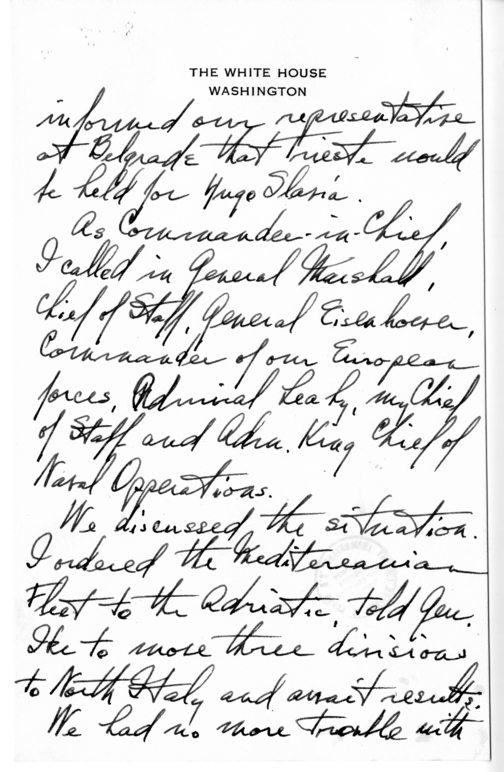 THE WHITE HOUSE
WASHINGTON
informed our representative
at Belgrade that Trieste would
be held for Yugo Slavia.
As Commander-in-Chief,
I called in General Marshall,
Chief of Staff, General Eisenhower,
Commander of our European
forces, Admiral Leahy, my Chief
of Staff and Adm. King Chief of
Naval Opperations.
We discussed the situation.
I ordered the Meditereanian
Fleet to the Adriatic, told Gen.
Ike to move three divisions
to North Italy and await results.
We had no more trouble with